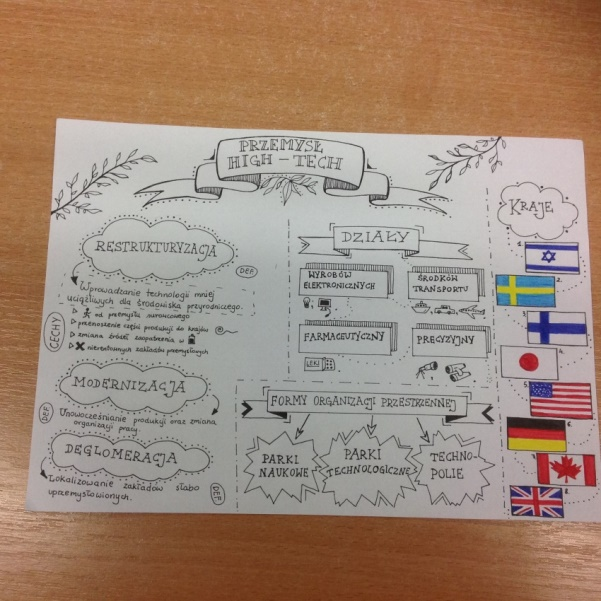 PRZEMYSŁ
HIGH-TECH
RESTRUKTURYZACJA
DEF.
Wprowadzanie technologii mniej
uciążliwych dla środowiska przyrodniczego.
CECHY
od przemysłu surowcowego
przenoszenie części produkcji do krajów
zmiana źródeł zaopatrzenia w
nierentownych zakładów przemysłowych
MODERNIZACJA
DEF
Unowocześnianie produkcji oraz zmiana
organizacji pracy.
DEGLOMERACJA
Lokalizowanie zakładów słabo
uprzemysłowionych.
DEF
DZIAŁY
WYROBÓW
ELEKTRONICZNYCH
ŚRODKÓW
TRANSPORTU
FARMACEUTYCZNY
PRECYZYJNY
LEKI
FORMY ORGANIZACJI PRZESTRZENNEJ
PARKI
NAUKOWE
PARKI
TECHNOLOGICZNE
TECHNO-
POLIE
KRAJE
1.
2.
3.
4.
5.
6.
7.
8.